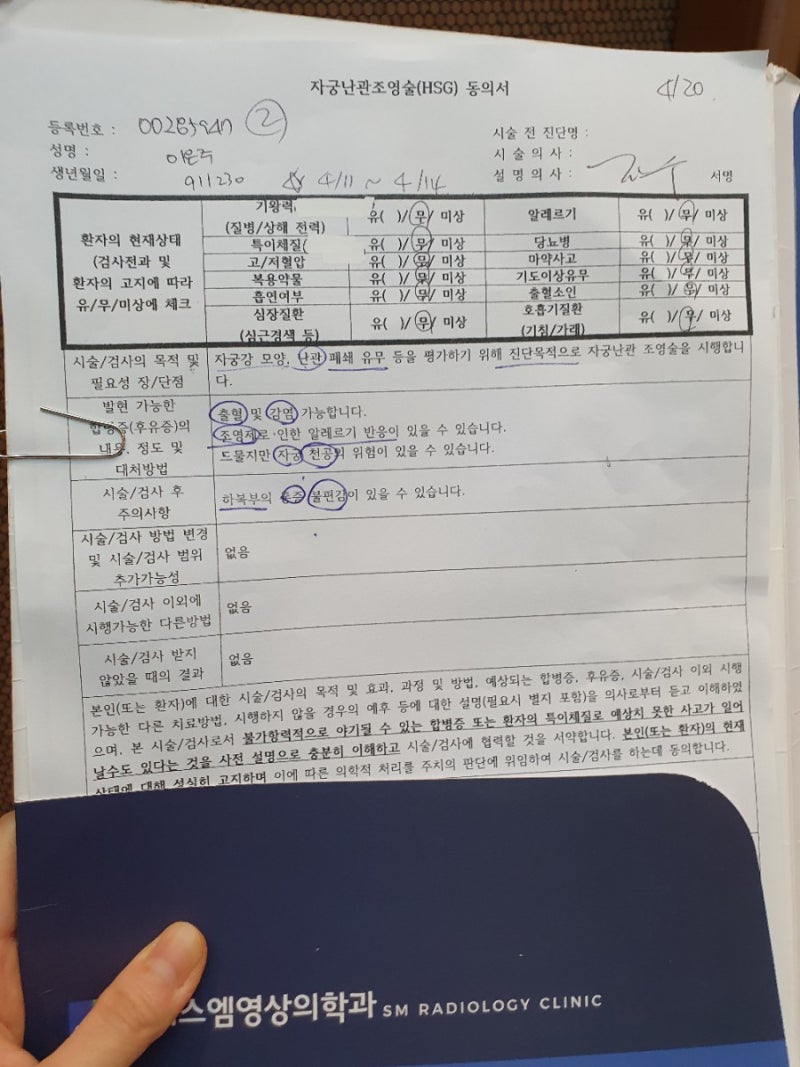 자궁난관조영술(HSG) 동의서
4/20
등록번호 :
②
시술 전 진단명 :
성명 : 이은주
시술의사 :
생년월일 : 911230 4/11 ~ 4/14
설명의사 : 서명
환자의 현재상태
(검사전과 및
환자의 고지에 따라
유/무/미상에 체크
기왕력
(질병/상해 전력)
유( )/ 무/ 미상
알레르기
유( )/ 무/ 미상
특이체질(
유( )/ 무/ 미상
당뇨병
유( )/ 무/ 미상
고/저혈압
유( )/ 무/ 미상
마약사고
유( )/ 무/ 미상
복용약물
유( )/ 무/ 미상
기도이상유무
유( )/ 무/ 미상
흡연여부
유( )/ 무/ 미상
출혈소인
유( )/ 무/ 미상
심장질환
(심근경색 등)
유( )/ 무/ 미상
호흡기질환
(기침/가래)
유( )/ 무/ 미상
시술/검사의 목적 및
필요성 장/단점
자궁강 모양, 난관 폐쇄 유무 등을 평가하기 위해 진단목적으로 자궁난관 조영술을 시행합니
다.
발현 가능한
합병증(후유증)의
내용, 정도 및
대처방법
출혈 및 감염 가능합니다.
조영제로 인한 알레르기 반응이 있을 수 있습니다.
드물지만 자궁 천공의 위험이 있을 수 있습니다.
시술/검사 후
주의사항
하복부의 통증 불편감이 있을 수 있습니다.
시술/검사 방법 변경
및 시술/검사 범위
추가가능성
없음
시술/검사 이외에
시행가능한 다른방법
없음
시술/검사 받지
않았을 때의 결과
없음
본인(또는 환자)에 대한 시술/검사의 목적 및 효과, 과정 및 방법, 예상되는 합병증, 후유증, 시술/검사 이외 시행
가능한 다른 치료방법, 시행하지 않을 경우의 예후 등에 대한 설명(필요시 별지 포함)을 의사로부터 듣고 이해하였
으며, 본 시술/검사로서 불가항력적으로 야기될 수 있는 합병증 또는 환자의 특이체질로 예상치 못한 사고가 일어
날수도 있다는 것을 사전 설명으로 충분히 이해하고 시술/검사에 협력할 것을 서약합니다. 본인(또는 환자)의 현재
상태에 대해 성실히 고지하며 이에 따른 의학적 처리를 주치의 판단에 위임하여 시술/검사를 하는데 동의합니다.
스엠영상의학과 SM RADIOLOGY CLINIC